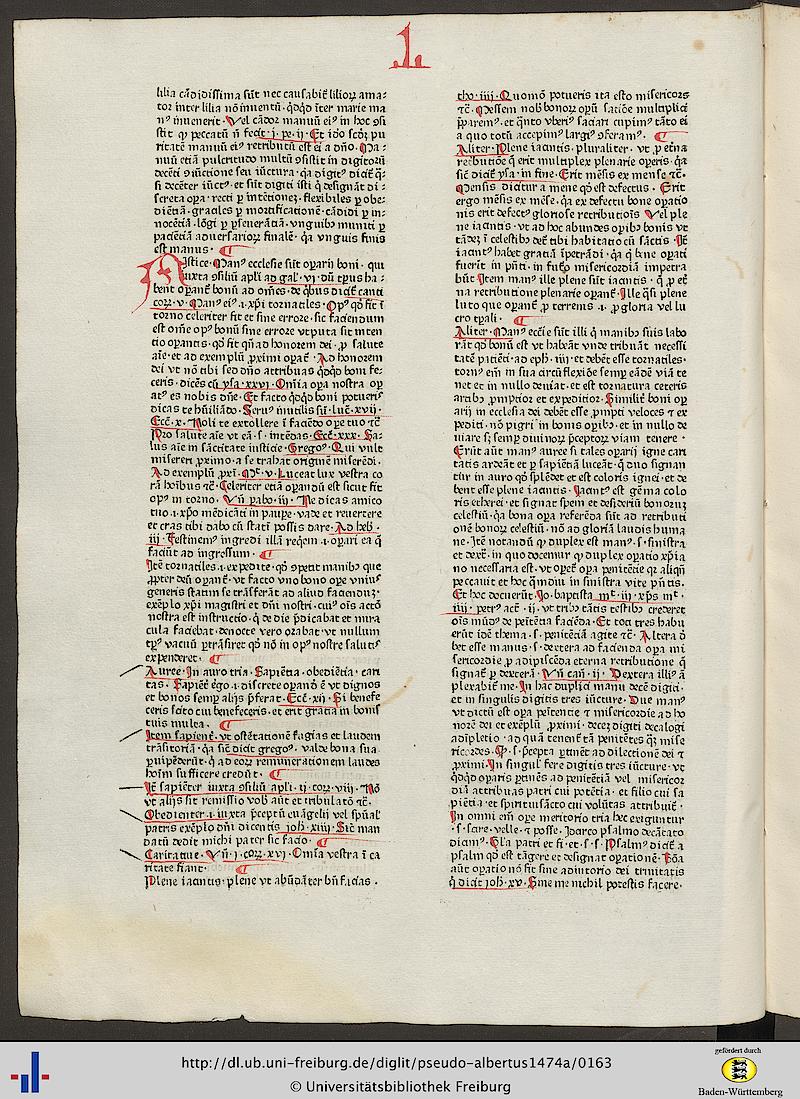 L
lilia cādidissima sūt nec causabiƚ lilioꝝ ama⸗
tor inter lilia nō inuentū · qd̄qd īter marie ma
nꝰ inuenerit · Vel cādor manuū eiꝰ in hoc ꝯsi
stit ꝙ peccatū n̄ fecit · j · pe · ij · Et ido scōꝝ pu
ritatē manuū eiꝰ retributū est ei a dn̄o · Ma⸗
nuū etiā pulcritudo multū ꝯsistit in digitoꝝ
decēti ꝯiūctione seu iūctura · qꝛ digitꝰ dicit̄ q̄ꝫ
si decēter iūctꝰ · et sūt digiti isti ꝙ designāt di⸗
screta oꝑa · recti ꝑ intētionez · flexibiles ꝑ obe⸗
diētiā · graciles ꝑ mortificationē · cādidi ꝑ in⸗
nocētiā · lōgi ꝑ ꝑseuerātiā · vnguibꝰ muniti ꝑ
paciētiā aduersarioꝝ finalē · qꝛ vnguis finis
est manus · ¶
Mistice · Manꝰ ecclesie sūt oꝑarij boni · qui
iuxta ꝯsiliū apl̄i ad gaƚ · vi · dū tꝑus ha⸗
bent oꝑant̄ bonū ad om̄es · de q̄bus dicit̄ canti
coꝝ · v · Manꝰ eiꝰ · i · xp̄i tornatiles · Opꝰ qd̄ fit ī
torno celeriter fit et sine errore · sic faciendum
est om̄e opꝰ bonū sine errore vtputa sit inten
tio oꝑantis · qd̄ fit q̄ꝫ ad honorem dei · ꝓ salute
aīe · et ad exemplū ꝓximi oꝑat̄ · Ad honorem
dei vt nō tibi sed dn̄o attribuas qd̄qd boni fe⸗
ceris · dicēs cū ysa · xxvi · Om̄ia oꝑa nostra oꝑ
atꝰ es nobis dn̄e · Et facto qd̄qd boni potueris
dicas te hūiliādo · Seruꝰ inutilis sū · luc̄ · xvij ·
Ecc̄ · x · Noli te extollere ī faciēdo oꝑe tuo ⁊c̄
Pro salute aīe vt eā · s · intēdas · Ecc̄ · xxx · Sa⸗
lus aīe in sāctitate iusticie · Gregoꝰ · Qui vult
misereri ꝓximo · a se trahat originē miserēdi ·
Ad exemplū ꝓxi · Mͭ · v · Luceat lux vestra co
rā hoībus ⁊c̄ · Celeriter etiā oꝑandū est sicut fit
opꝰ in torno · Vn̄ ꝑabo · iij · Ne dicas amico
tuo · i · xp̄o mēdicāti in pauꝑe · vade et reuertere
et cras tibi dabo cū stati possis dare · Ad heb̄ ·
iij · Festinemꝰ ingredi illā req̄em · i · oꝑari ea ꝙ
faciūt ad ingressum · ¶
Itē tornatiles · i · expedite · qd̄ ꝯpetit manibꝰ que
ꝓpter deū oꝑant̄ · vt facto vno bono oꝑe vniꝰ
generis statim se trāsferāt ad aliud faciendū ·
exēplo xp̄i magistri et dn̄i nostri · cuiꝰ oīs actō
nostra est instructio · ꝙ de die p̄dicabat et mira
cula faciebat · denocte vero orabat · vt nullum
tꝑꝰ vacuū ꝑtrāsiret qd̄ nō in opꝰ nostre salutꝭ
expenderet · ¶
Auree · In auro tria · Sapiētia · obediētia · cari
tas · Sapiēt̄ ergo · i · discrete oꝑandō ē vt dignos
et bonos semꝑ alijs p̄ferat · Ecc̄ · xij · Si benefe
ceris scito cui benefeceris · et erit gratia in bonis
tuis multa · ¶
Item sapient̄ · vt ostētationē fugias et laudem
trāsitoriā · qꝛ sic̄ dicit gregoꝰ · valde bona sua
ꝑuipēderūt · ꝙ ad eoꝝ remunerationem laudes
hoīm sufficere credūt · ¶
Itē sapiēter iuxta ꝯsiliū apl̄i · ij · coꝝ · viij · Nō
vt alijs sit remissio vob̄ aūt et tribulatō ⁊c̄ ·
Obedienter · i · iuxta p̄ceptū euāgelij vel spūaƚ
patris exēplo dn̄i dicentis ioh̄ · xiiij · Sic̄ man
datū dedit michi pater sic facio · ¶
Caritatiue · Vn̄ · j · coꝝ · xvj · Om̄ia vestra ī ca
ritate fiant · ¶
Plene iacintis · plene vt abūdāter bn̄ facias ·
tho · iiij · Quomō potueris ita esto misericors
⁊c̄ · Messem nob̄ bonoꝝ oꝑū satiōe multipliciꝭ
p̄ꝑaremꝰ · et q̄nto vberiꝰ saciari cupimꝰ tāto ei
a quo totū accepimꝰ largiꝰ ꝯferamꝰ · ¶
Aliter · Plene iacintis · pluraliter · vt ꝑ etna
rectibutiōe ꝙ erit multiplex plenarie operis · qꝛ
sic̄ dicit̄ ysa · in fine · Erit mēsis ex mense ⁊c̄ ·
Mensis dicitur a mene qd̄ est defectus · Erit
ergo mēsis ex mēse · qꝛ ex defectu bone oꝑatio
nis erit defectꝰ gloriose retributiōis · Vel ple
ne iacintis · vt ad hoc abundes oꝑibꝰ bonis vt
tādez ī celestibꝰ det̄ tibi habitatio cū sāctis · Itē
iacint̄ habet gratiā īpetrādi · qꝛ ꝙ bn̄e oꝑati
fuerit in pn̄ti · in futꝭo misericordiā impetra
būt · Item manꝰ ille plene sūt iacintis · ꝙ ꝓ et̄
na retributione plenarie oꝑant̄ · Ille q̄si plene
luto que oꝑant̄ ꝓ terrenis · i · ꝓ gloria vel lu
cro tꝑali · ¶
Aliter · Manꝰ eccīe sūt illi ꝙ manibꝰ suis labo
rāt qd̄ bonū est vt habeāt vnde tribuāt necessi
tatē patiēti · ad eph̄ · iiij · et debēt esse tornatiles ·
tornꝰ em̄ in sua circūflexiōe semꝑ eādē viā te
net et in nullo deuiat · et est tornatura ceteris
artibꝰ ꝓmptior et expeditior · Similiē boni oꝑ
arij in ecclesia dei debēt esse ꝓmpti veloces ⁊ ex
pediti · nō pigri in bonis oꝑibꝰ · et in nullo de
uiare sꝫ semꝑ diuinoꝝ p̄ceptoꝝ viam tenere ·
Erūt aūt manꝰ auree si tales oꝑarij igne cari
tatis ardeāt et ꝑ sapiētiā luceāt · ꝙ duo signan
tur in auro qd̄ splēdet et est coloris ignei · et de
bent esse plene iacintis · Iacintꝰ est gēma colo
ris etherei · et signat spem et desideriū bonoꝝ
celestiū · qꝛ bona oꝑa referēda sūt ad retributi
onē bonoꝝ celestiū · nō ad gloriā laudis huma
ne · Itē notandū ꝙ duplex est manꝰ · s · sinistra
et dext̄ · in quo docemur ꝙ duplex oꝑatio xp̄ia
no necessaria est · vt oꝑet̄ oꝑa penitētie qꝛ aliqn̄
peccauit et hoc q̄mdiu in sinistra vite pn̄tis ·
Et hoc docuerūt · Io · baptista mͭ · iij · xp̄s mͭ ·
iiij · petrꝰ act̄ · ij · vt tribꝰ tātis testibꝰ crederet
oīs mūdꝰ de pēitētia faciēda · Et toti tres habu
erūt idē thema · s · penitētiā agite ⁊c̄ · Altera d̓
bet esse manus · s · dextera ad facienda oꝑa mi
sericordie ꝓ adipiscēda eterna retributione ꝙ
signat̄ ꝑ dexterā · Vn̄ can̄ · ij · Dextera illiꝰ ā
plexabit̄ me · In hac duplici manu decē digiti ·
et in singulis digitis tres iūcture · Due manꝰ
vt dictū est oꝑa pēitētie ⁊ misericordie ad ho
norē dei et exēplū ꝓximi · decez digiti decalogi
adīpletio · ad quā tenent̄ tā penitētes q̄ꝫ mise
ricordes · Ꝙ · s · p̄cepta ꝑtinēt ad dilectionē dei ⁊
ꝓximi · In singulꝭ fere digitis tres iūcture · vt
qd̄qd oꝑaris ꝑtinēs ad penitētiā vel misericor
diā attribuas patri cui potētia · et filio cui sa
piētia · et spirituisācto cui volūtas attribuit̄ ·
In omni em̄ oꝑe meritorio tria hec exiguntur
· s · scire · velle · ⁊ posse · Idarco psalmo decātato
dicim̄ · Gl̄a patri et fi · et · s · s · Psalmꝰ dicit̄ a
psalm qd̄ est tāgere et designat oꝑationē · Bōa
aūt oꝑatio nō fit sine adiutorio dei trinitatis
ꝙ dicit ioh̄ · xv · Sine me nichil potestis facere ·
http://dl.ub.uni-freiburg.de/diglit/pseudo-albertus1474a/0163
© Universitätsbibliothek Freiburg
gefördert durch
Baden-Württemberg